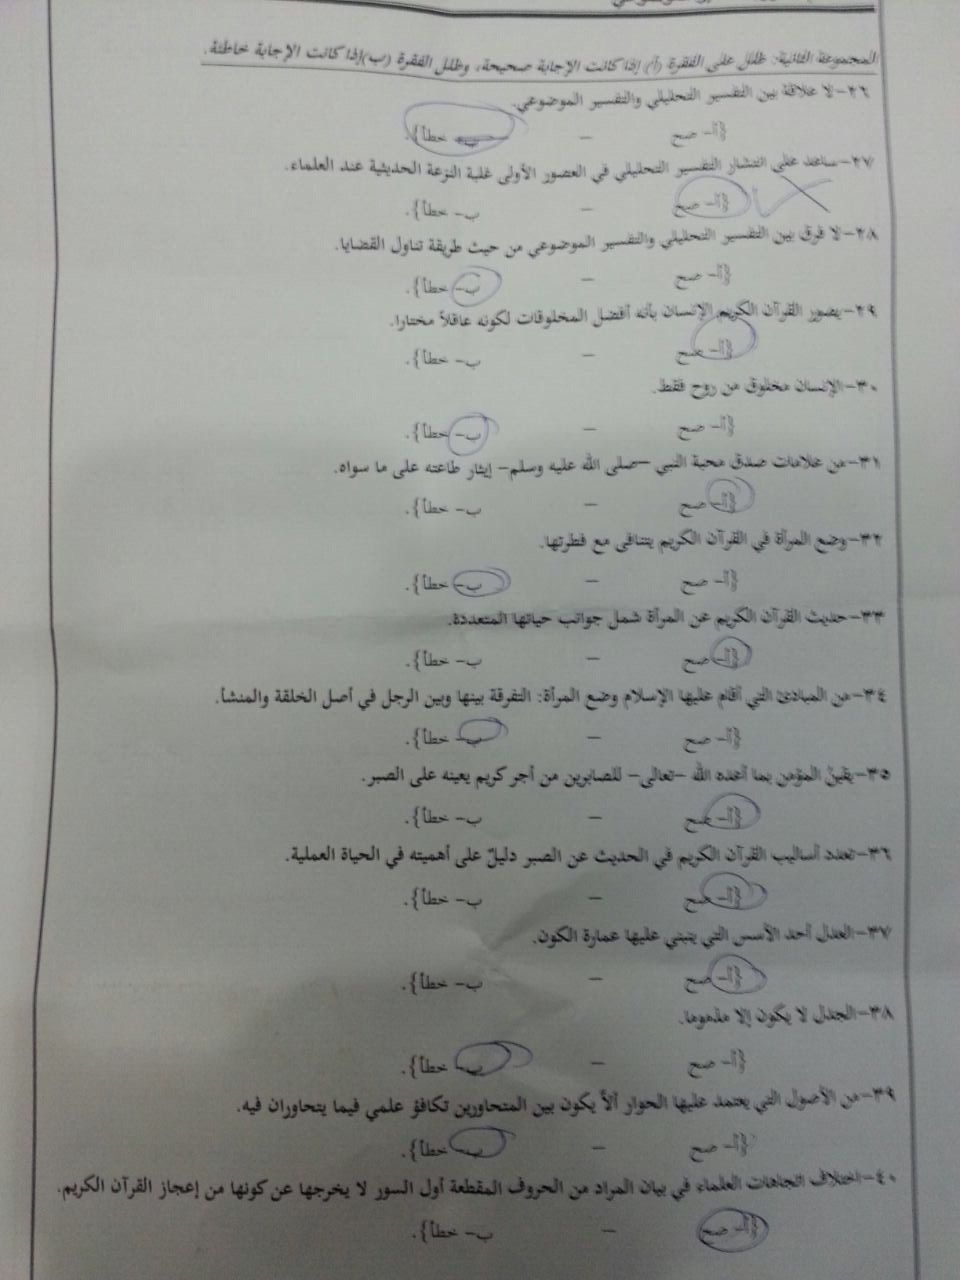 المجموعة الثانية: ظلل على الفقرة (أ) إذا كانت الإجابة صحيحة، وظلل الفقرة (ب) إذا كانت الإجابة خاطئة.
٢٦-لا علاقة بين التفسير التحليلي والتفسير الموضوعي.
{أ- صح – ب- خطأ}.
٢٧-ساعد على انتشار التفسير التحليلي في العصور الأولى غلبة النزعة الحديثية عند العلماء.
{أ- صح – ب- خطأ}.
٢٨-لا فرق بين التفسير التحليلي والتفسير الموضوعي من حيث طريقة تناول القضايا.
{أ- صح – ب- خطأ}.
٢٩-يصور القرآن الكريم الإنسان بأنه أفضل المخلوقات لكونه عاقلاً مختارا.
{أ- صح – ب- خطأ}.
٣٠-الإنسان مخلوق من روح فقط.
{أ- صح – ب- خطأ}.
٣١-من علامات صدق محبة النبي –صلى الله عليه وسلم- إيثار طاعته على ما سواه.
{أ- صح – ب- خطأ}.
٣٢-وضع المرأة في القرآن الكريم يتنافى مع فطرتها.
{أ- صح – ب- خطأ}.
٣٣-حديث القرآن الكريم عن المرأة شمل جوانب حياتها المتعددة.
{أ- صح – ب- خطأ}.
٣٤-من المبادئ التي أقام عليها الإسلام وضع المرأة: التفرقة بينها وبين الرجل في أصل الخلقة والمنشأ.
{أ- صح – ب- خطأ}.
٣٥-يقينُ المؤمن بما أعده الله –تعالى- للصابرين من أجر كريم يعينه على الصبر.
{أ- صح – ب- خطأ}.
٣٦-تعدد أساليب القرآن الكريم في الحديث عن الصبر دليلٌ على أهميته في الحياة العملية.
{أ- صح – ب- خطأ}.
٣٧-العدل أحد الأسس التي ينبني عليها عمارة الكون.
{أ- صح – ب- خطأ}.
٣٨-الجدل لا يكون إلا مذموما.
{أ- صح – ب- خطأ}.
٣٩-من الأصول التي يعتمد عليها الحوار ألاَّ يكون بين المتحاورين تكافؤ علمي فيما يتحاوران فيه.
{أ- صح – ب- خطأ}.
٤٠-اختلاف اتجاهات العلماء في بيان المراد من الحروف المقطعة أول السور لا يخرجها عن كونها من إعجاز القرآن الكريم.
{أ- صح – ب- خطأ}.